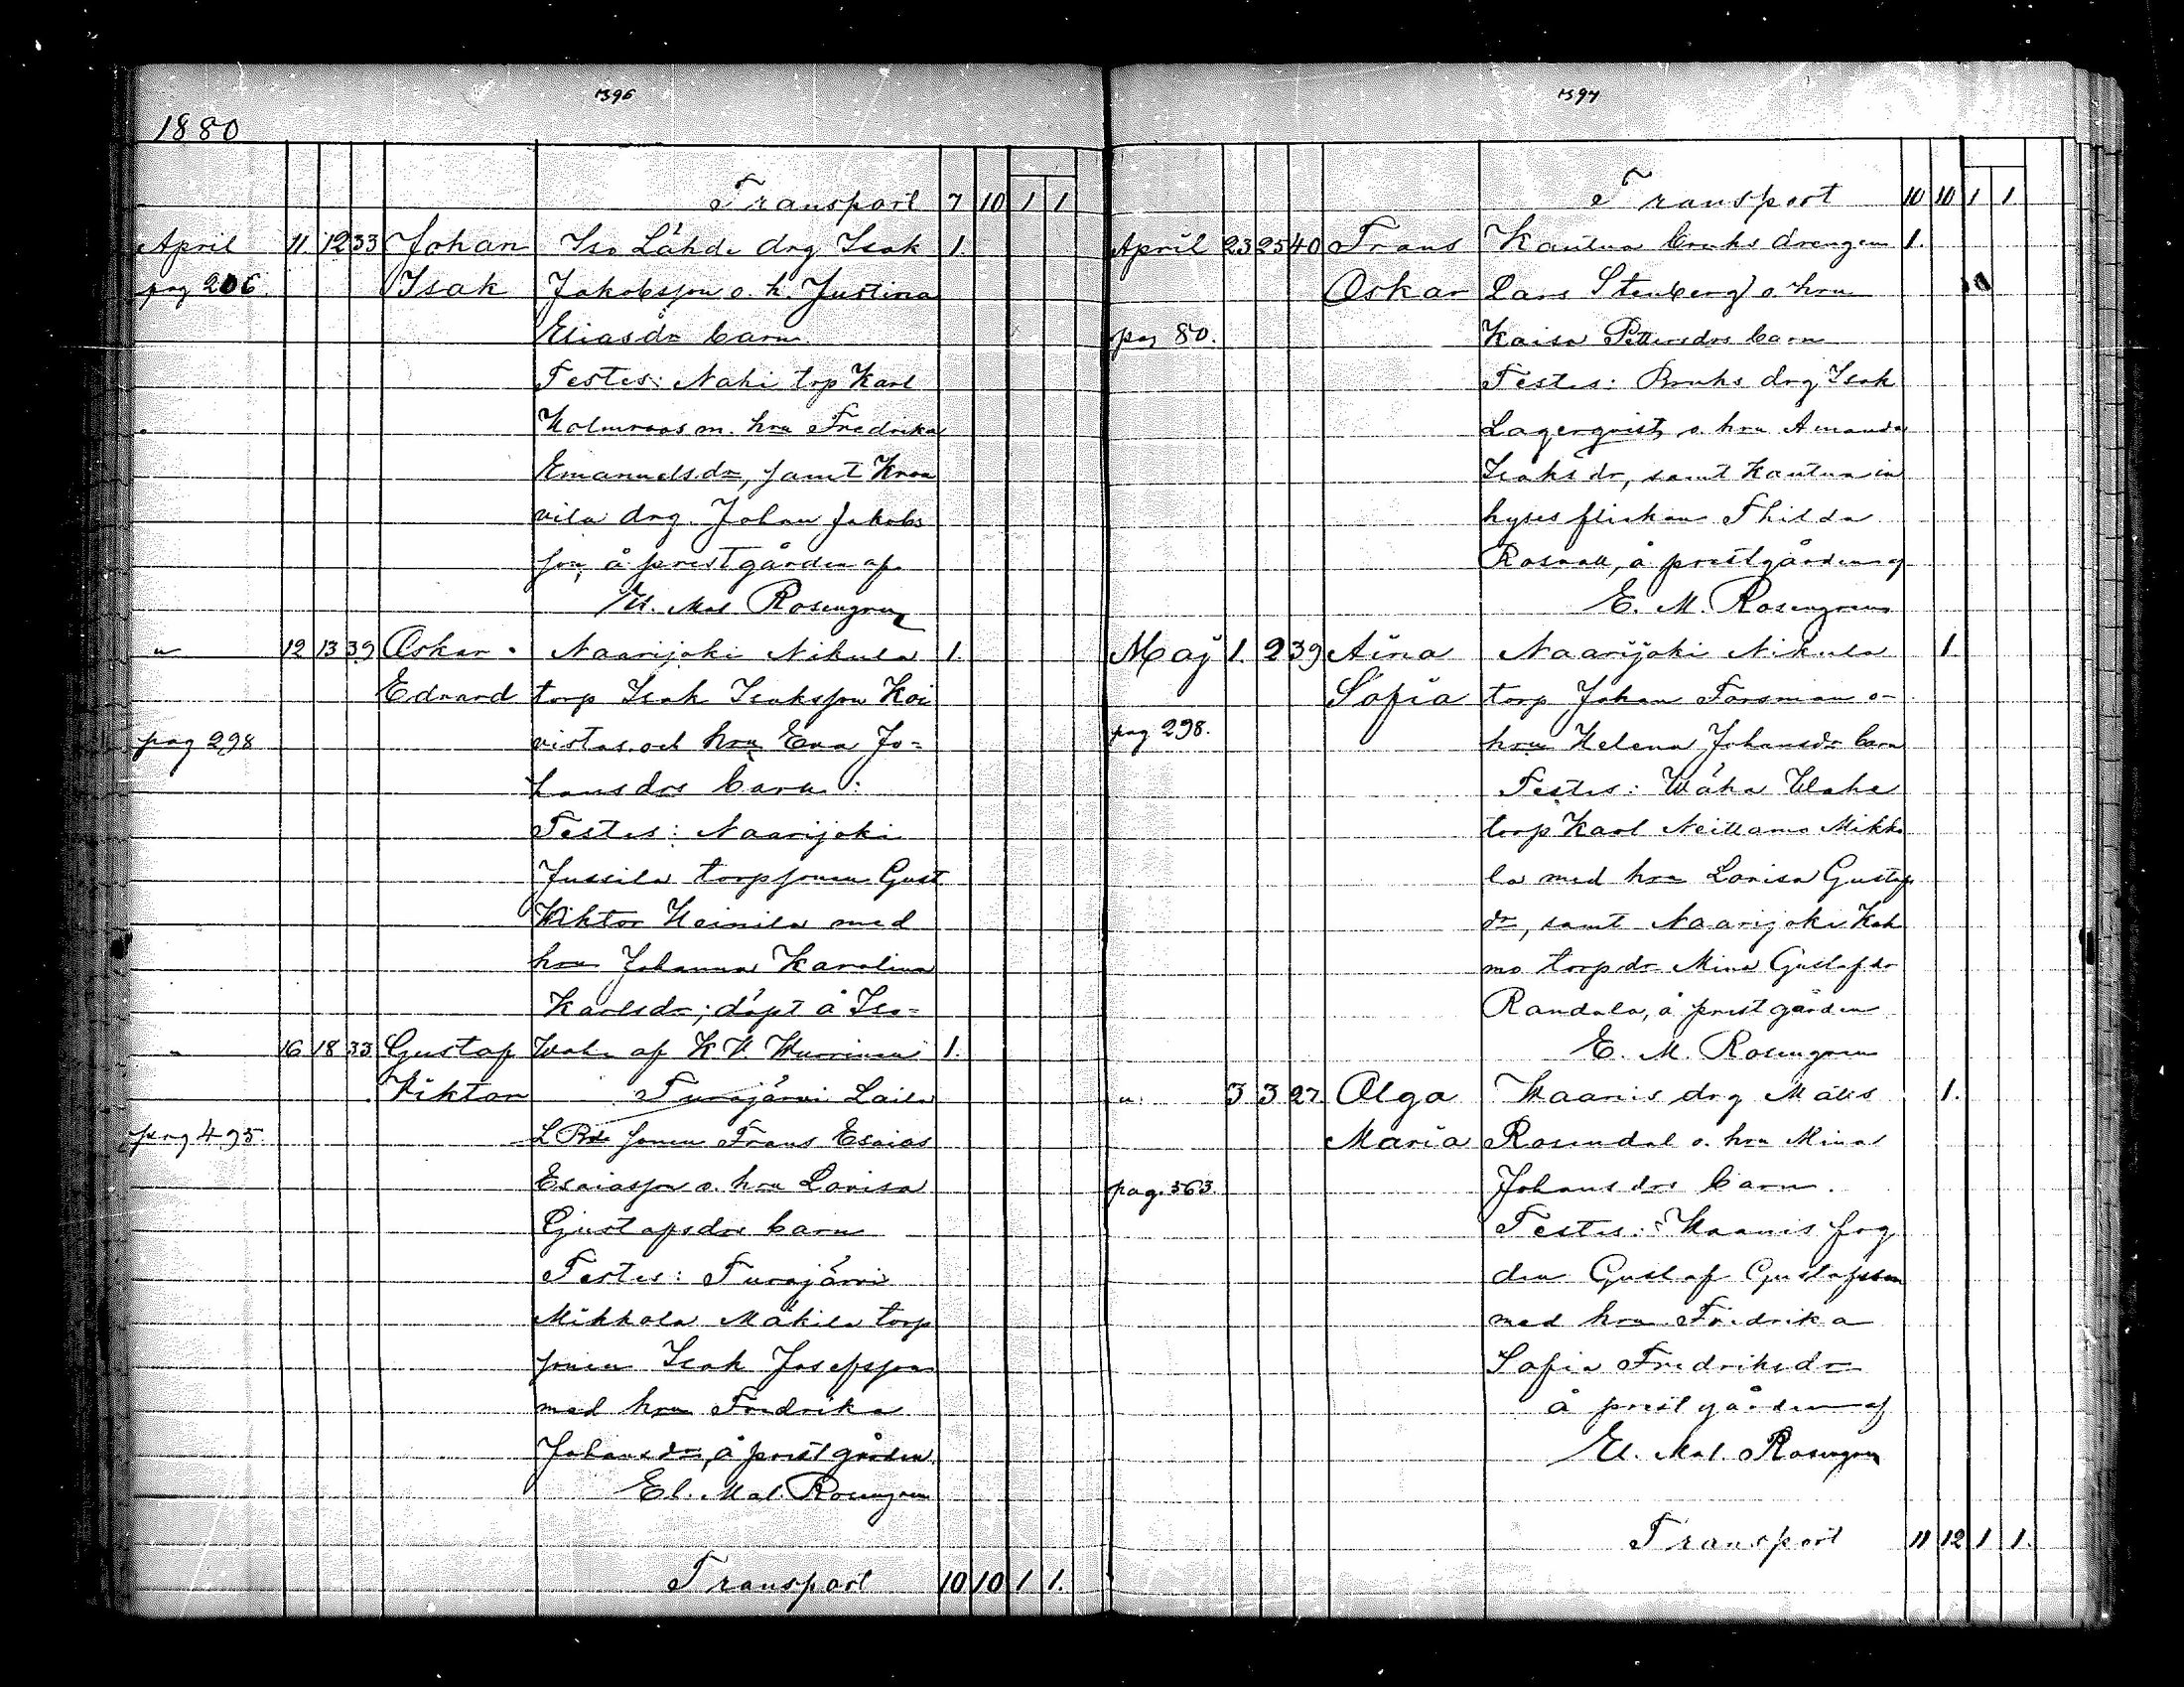 1396
1880
Transport 7 10 1 1
April 11. 12 33 Johan Iso Lähde drg Isak 1.
pag 206. Isak Jakobsson o. h. Justina
Eliasdr barn
Testes: Naki torp Karl
Holmroos m. hru Fredrika
Emanuelsdr, samt Kraa
vila drg. Johan Jakobs
son, å prestgården af
El. Mal Rosengren
" 12 13 39 Oskar Naarijoki Nikula 1.
Edvard torp Isak Isaksson Koi
pag 298 vistas och hru Eva Jo=
hansdrs barn:
Testes: Naarijoki
Jussila torpsonen Gust
Wiktor Heinilä med
hru Johanna Karolina
Karlsdr; döpt å Iso=
" 16 18 33 Gustaf af K V. 1.
Viktor Turajärvi Laila
pag 495. L Bde sonen Frans Esaias
Esaiasson o. hru Lovisa
Gustafsdrs barn
Testes: Turajärvi
Mikkola Mäkilä torp
sonen Isak Josefsson
med hru Fredrika
Johansdr, å prestgården
El. Mal. Rosengren
Transport 10 10 1 1.
1397
Transport 10 10 1 1
April 23 25 40 Frans Kautua bruks drengen 1.
Oskar Lars Stenberg o hru
pag 80. Kaisa Pettersdrs barn
Testes: Bruks drg Isak
Lagerqvist, o. hru Amanda
Isaksdr, samt Kautua in
hyses flickan Thilda
Rosvall, å prestgården af
E. M. Rosengren
Maj 1. 2 39 Aina Naarijoki Nikula 1.
Sofia torp Johan Forsman o
pag 298. hru Helena Johansdr barn
Testes: Wähä Wahe
torp Karl Neittamo Mikko
la med hru Lovisa Gustafs
dr, samt Naarijoki Kah
mo torpdr Mina Gustafsdr
Randala, å prestgården
E. M. Rosengren
" 3 3 27 Olga Kaanis drg Matts 1.
Maria Rosendal o. hru Mina
pag. 363. Johansdrs barn.
Testes: Kaanis fog
den Gustaf Gustafsson
med hru Fredrika
Sofia Fredriksdr
å prestgården af
El. Mal. Rosengren
Transport 11 12 1 1.